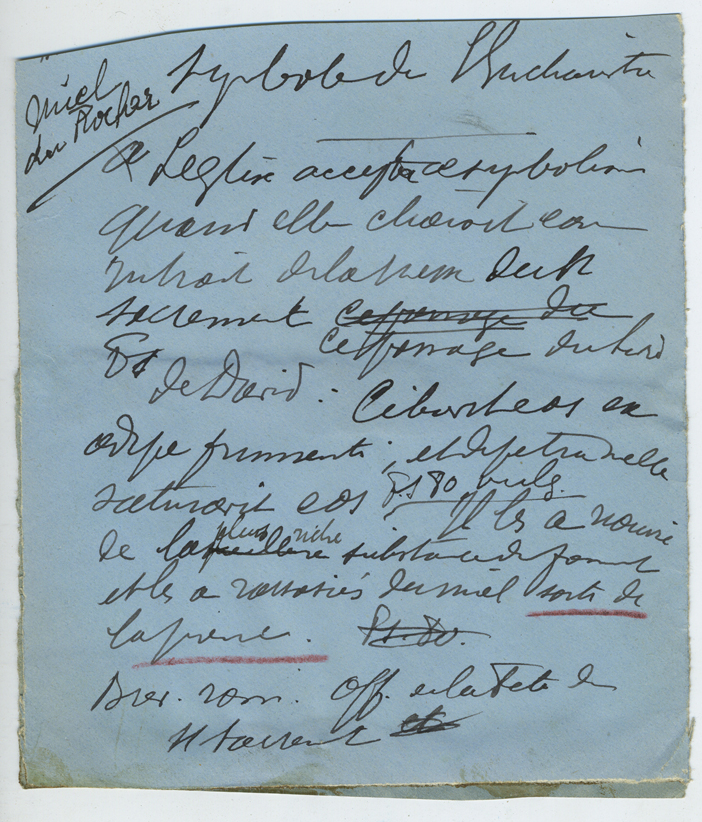 Miel
du Rocher
symbole de l'Eucharistie
L'eglise accepta ce symbolism
quand elle choisit comme
Introit de la messe du St
sacrement ce passage du
ce passage du livre
Ps
de David : Cibavit eos ex
adipe frumenti ; et de petra melle
saturavit eos Ps 80 vulg.
Il les a nourri
de la plus riche
meilleure substance du froment
et les a rassasiés du miel sorti de
la pierre. Ps. 80.
Brev. rom. Off. de la Fete du
St Sacrement et